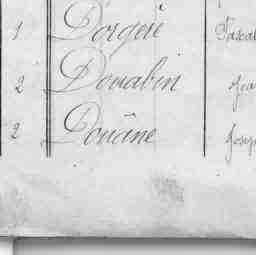 1 Dorgère Pascal
2 Donabin Jea
2 Douâne Josep